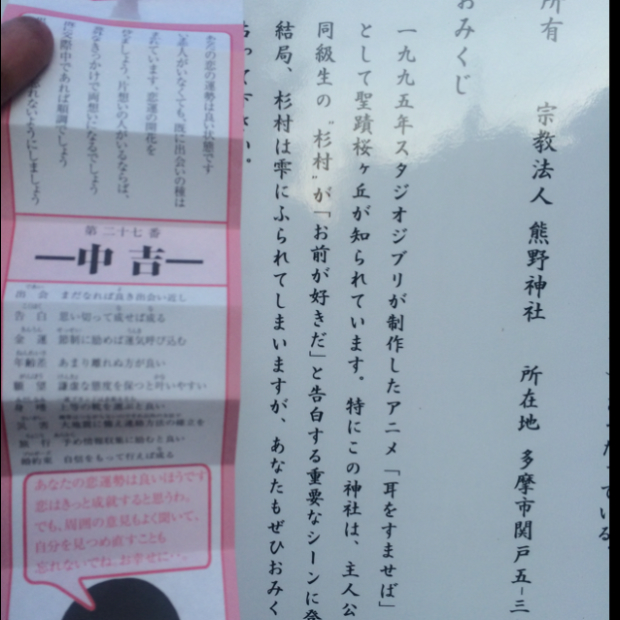 所有 宗教法人 熊野神社 所在地 多摩市関戸五-三
おみくじ
一九九五年スタジオジブリが制作したアニメ「耳をすませば」
として聖蹟桜ヶ丘が知られています。特にこの神社は、主人公
同級生の〝杉村〟が「お前が好きだ」と告白する重要なシーンに登
結局、杉村は雫にふられてしまいますが、あなたもぜひおみく
って下さい。
あなたの恋の運勢は良い状態です
恋人がいなくても、既に出会いの種は
まれています。恋運の開花を
ましょう。片想いの人がいるならば、
なきっかけで両想いになるでしょう
交際中であれば順調でしょう
れないようにしましょう
第二十七番
中吉
出会 まだなれば良き出会い近し
告白 思い切って成せば成る
金運 節制に励めば運気呼び込む
年齢差 あまり離れぬ方が良い
願望 謙虚な態度を保つと叶いやすい
身嗜 上等の靴を選ぶと良い
災害 大地震に備え連絡方法の確立を
旅行 予め情報収集に励むと良い
婚約束 自信をもって行えば成る
あなたの恋運勢は良いほうです
恋はきっと成就すると思うわ。
でも、周囲の意見もよく聞いて、
自分を見つめ直すことも
忘れないでね。お幸せに。